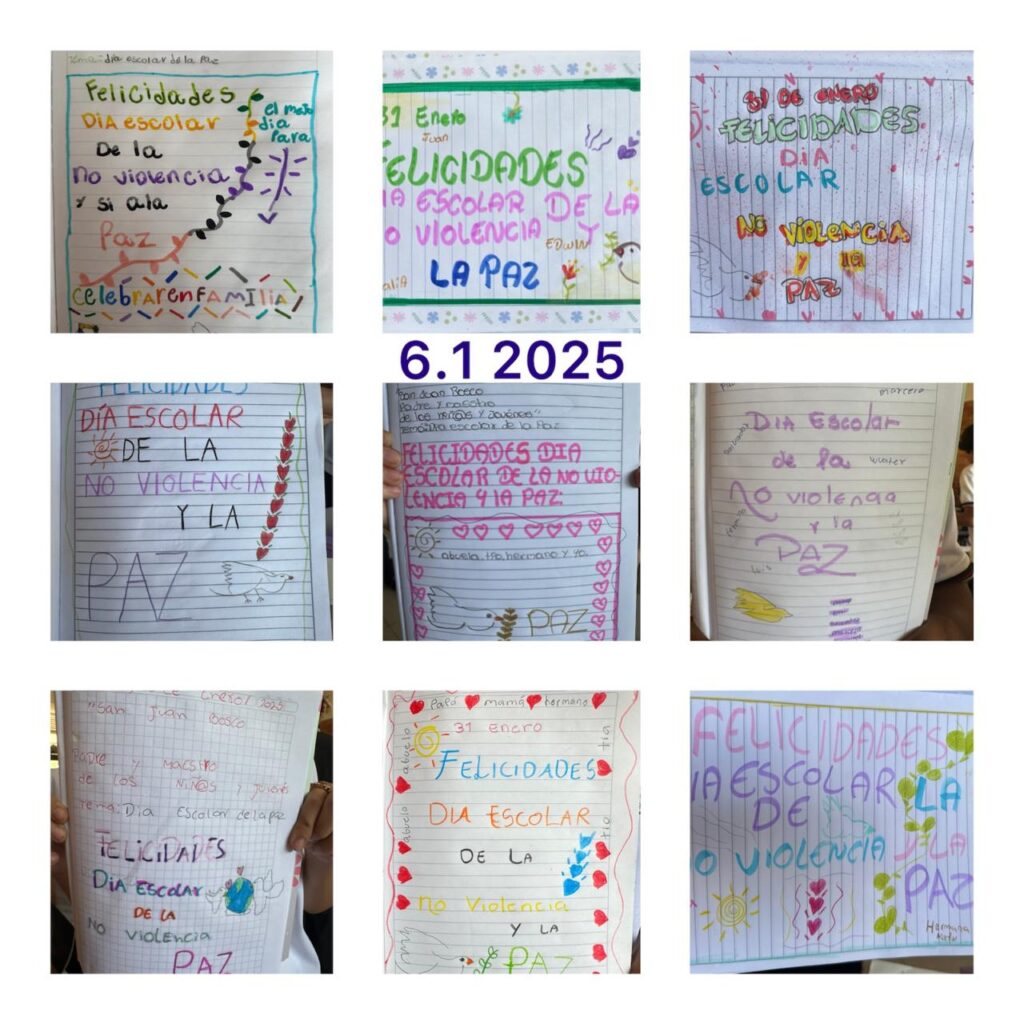 Tema: día escolar de la Paz
Felicidades
Dia escolar
De la
No violencia
y si a la
Paz
el mejo
dia
Para
CelebrarenFamilia
31 Enero
Juan
ELICIDADES
IA ESCOLAR DE LA
O VIOLENCIA Y
EDwIN
LA PAZ
alia
31 DE ENERO
FELICIDADES
DIA
ESCOLAR
NO VIOLENCIA
Y la
PAZ
6.1 2025
FELICIDADES
DÍA ESCOLAR
DE LA
NO VIOLENCIA
Y LA
PAZ
San Juan Bosco
Padre y maestro
de los niñ@s y Jovenes"
Tema: Dia escolar de la Paz
FELICIDADES DIA
ESCOLAR DE LA NO VIO-
LENCIA Y lA PAZ:
abuela, tio, hermano y yo.
PAZ
marcelo
DIA Escolar
de la
No violencia
y la
PAZ
Luis
Enero/ 2025
"San Juan Bosco
Padre y Maestro
de los Niñ@s y
Tema: Dia Escolar de la paz
FELICIDADES
DIA ESCOLAR
DE LA
NO VIOLENCIA
PAZ
Papá mamá hermano
abuelo
abuelo
tia
tio
31 ENERO
FELICIDADES
DIA ESCOLAR
DE LA
No Violencia
Y LA
PAZ
FELICIDADES
IA ESCOLAR LA
DE
O VIOLENCIA Y LA
PAZ
Hermana